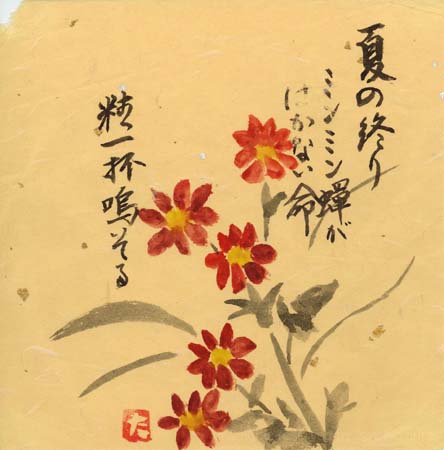 夏の終り
ミンミン蟬が
はかない命
精一杯鳴いてる
た